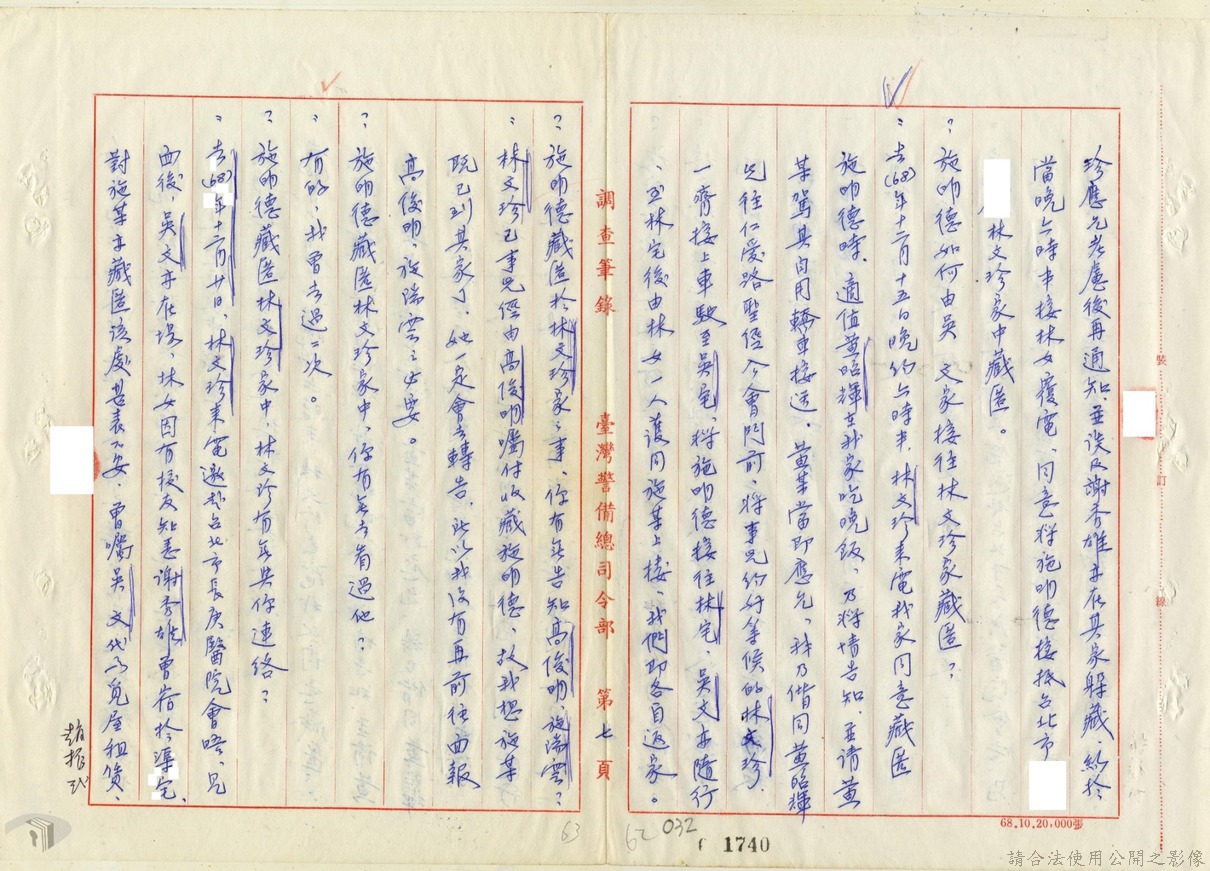 珍應允考慮後再通知、並談及謝秀雄亦在其家躲藏、終於
當晚六時半接林女覆電、同意將施明德接抵台北市
林文珍家中藏匿。
?施明德如何由吳 文家接往林文珍家藏匿?
:去(68)年十二月十五日晚約六時半、林文珍來電我家同意藏匿
施明德時、適值黃昭輝在我家吃晚飯、乃將情告知、並請黃
某駕其自用轎車接送。黃某當即應允、我乃偕同黃昭輝
先往仁愛路聖經公會門前、將事先約好等候的林文珍、
一齊接上車駛至吳宅、將施明德接往林宅、吳文亦隨行
、至林宅後由林女一人護同施某上樓、我們即各自返家。
調查筆錄 臺灣警備總司令部 第七頁
?施明德藏匿於林文珍家之事、你有無告知高俊明、施瑞雲?
:林文珍已事先經由高俊明囑付收藏施明德、故我想施某
既已到其家了、她一定會去轉告、所以我沒有再前往面報
高俊明、施瑞雲之必要。
?施明德藏匿林文珍家中、你有無去看過他?
:有的、我曾去過二次。
?施明德藏匿林文珍家中、林文珍有無與你連絡?
:去(68)年十二月廿日、林文珍來電邀我台北市長庚醫院會晤、見
面後、吳文亦在場、林女因有校友知悉謝秀雄曾宿於渠宅、
對施某亦藏匿該處甚表不安、曾囑吳 文代為覓屋租賃、
趙振貳
裝
訂
線
68.10.20,000張
62
032
63
1740
請合法使用公開之影像